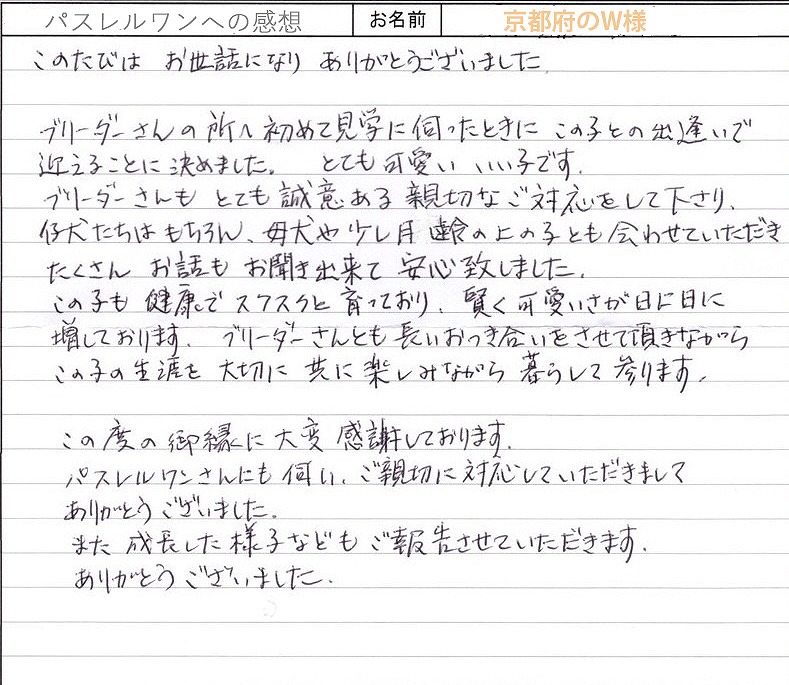 パスレルワンへの感想 お名前 京都府のW様
このたびは お世話になり ありがとうございました。
ブリーダーさんの所へ初めて見学に伺ったときに この子との出逢いで
迎えることに決めました。 とても可愛い いい子です。
ブリーダーさんも とても誠意ある親切なご対応をして下さり、
仔犬たちはもちろん、母犬や少し月齢の上の子とも会わせていただき
たくさん お話も お聞き出来て 安心致しました。
この子も 健康でスクスクと育っており、賢く可愛いさが日に日に
増しております。 ブリーダーさんとも長いおつき合いをさせて頂きながら
この子の生涯を 大切に 共に楽しみながら 暮らして参ります。
この度の御縁に大変 感謝しております。
パスレルワンさんにも伺い、ご親切に対応していただきまして
ありがとうございました。
また 成長した様子なども ご報告させていただきます。
ありがとうございました。